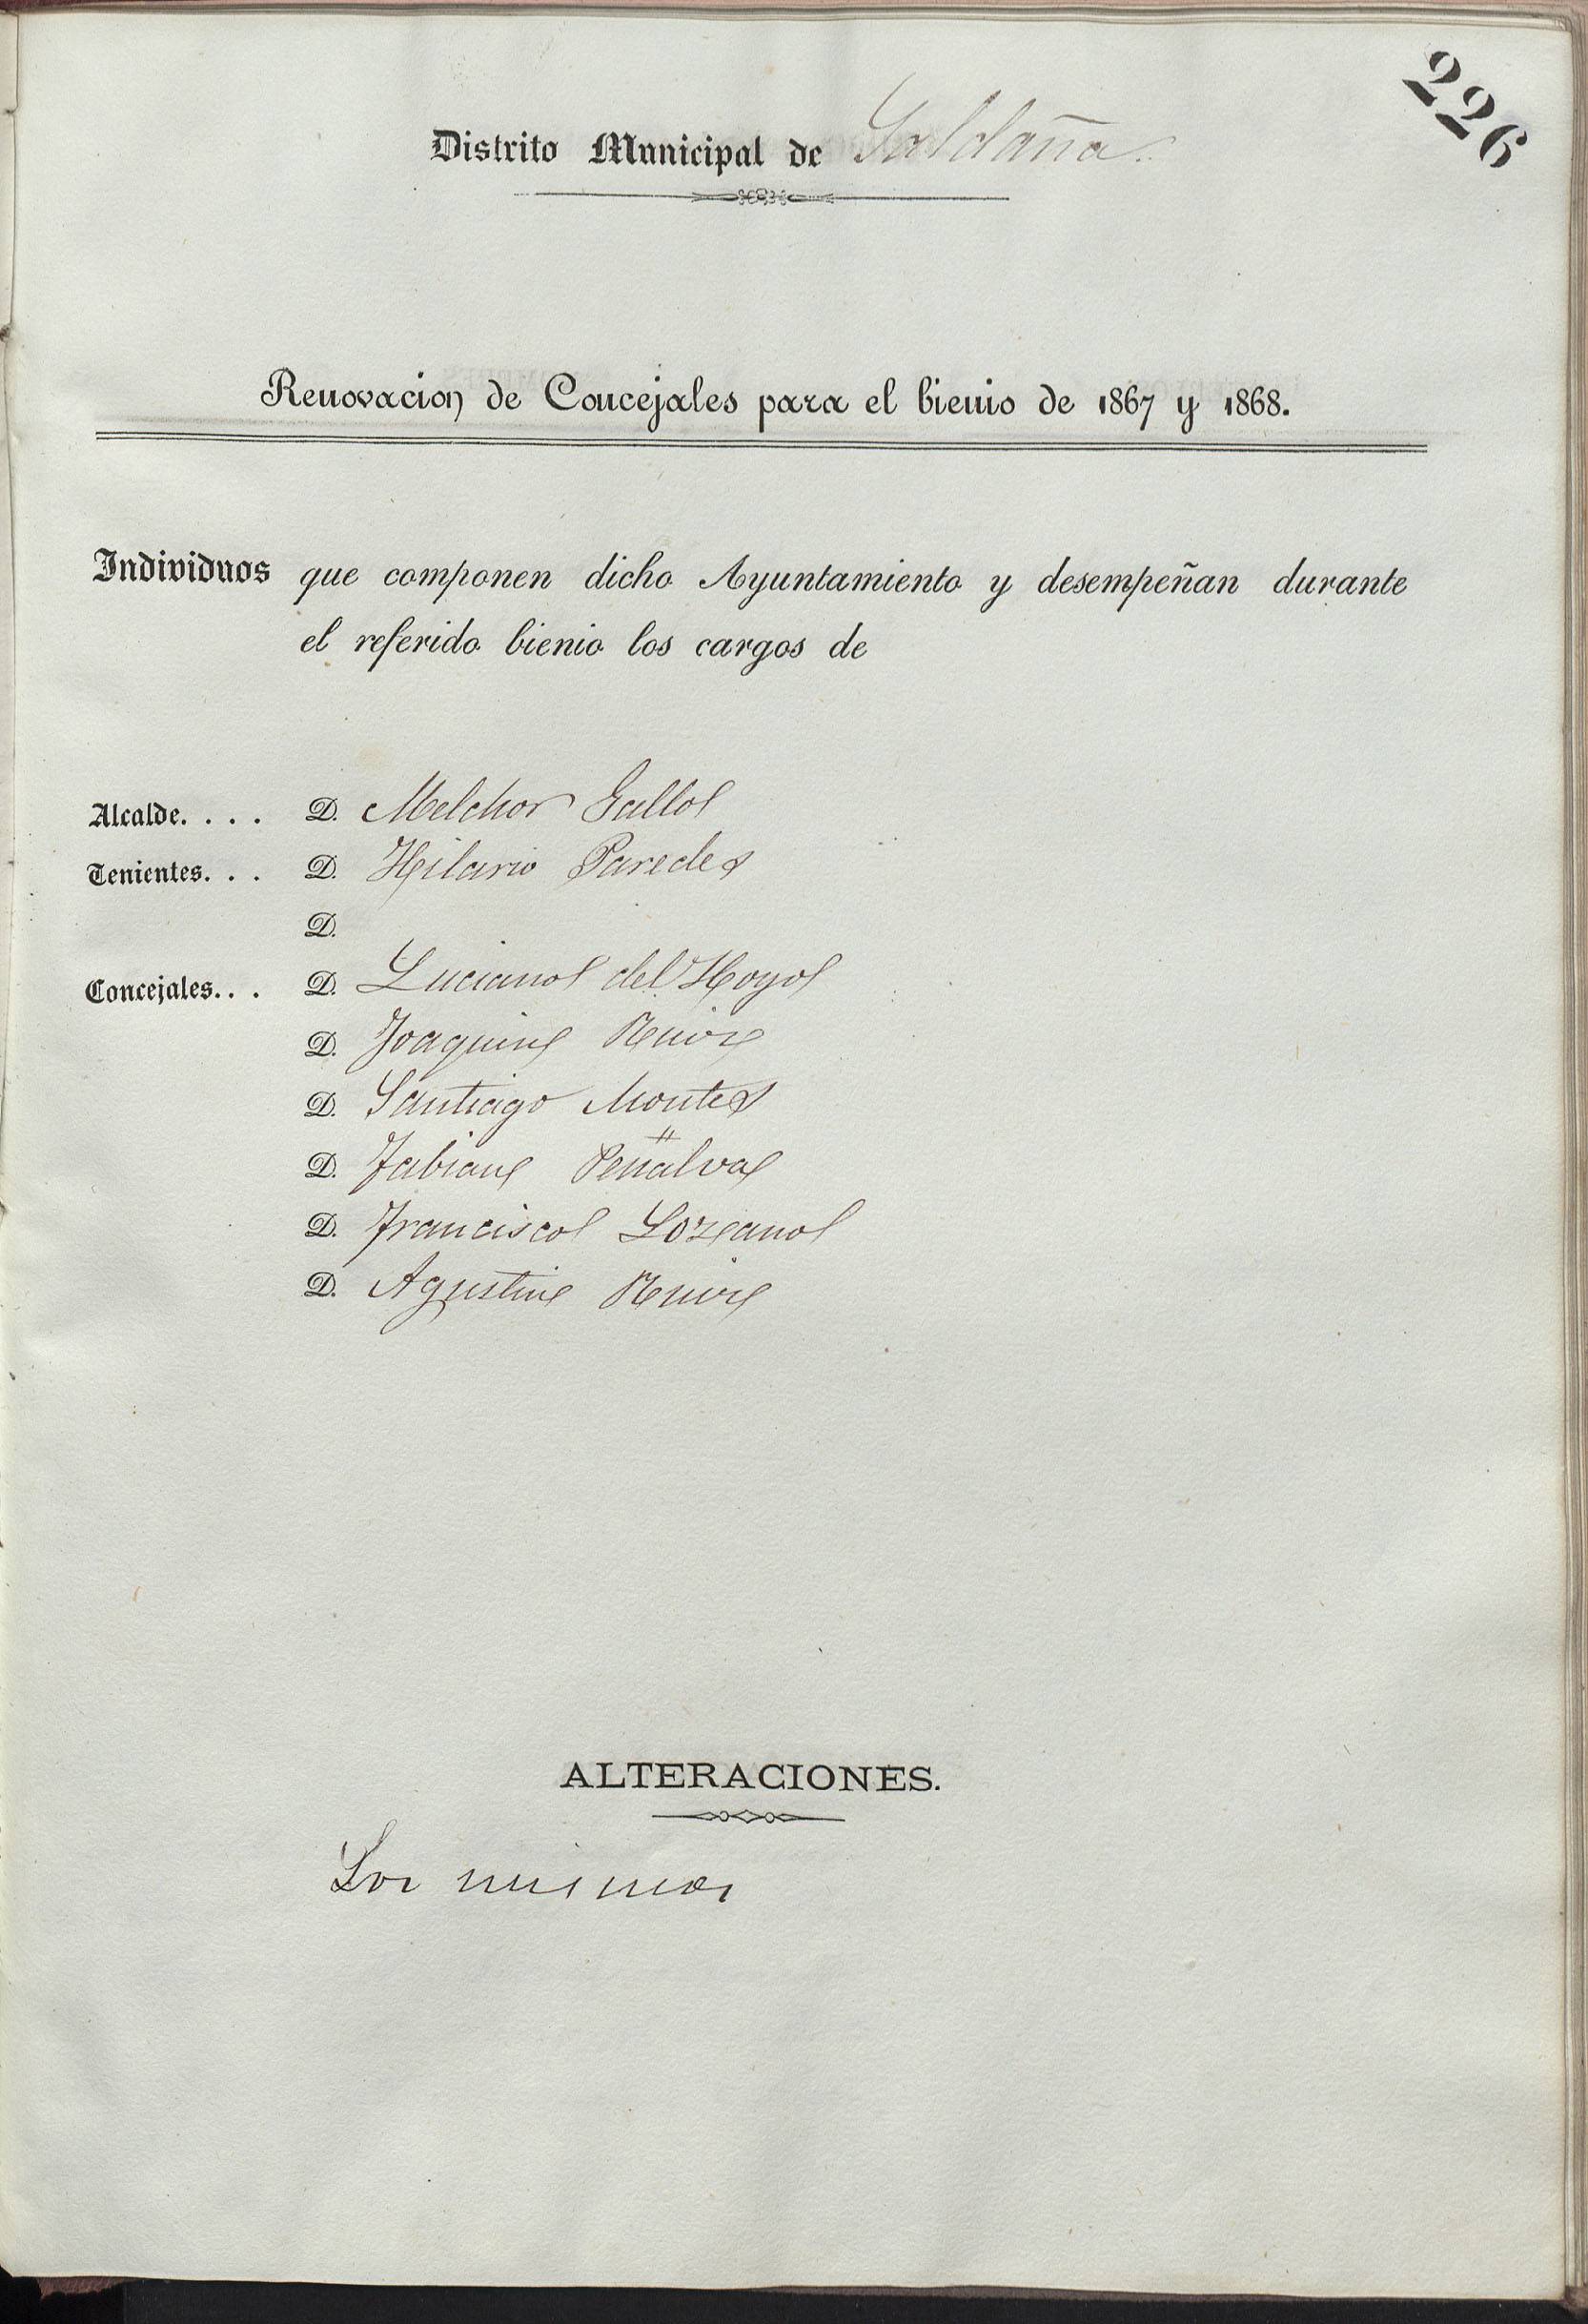 226
Distrito Municipal de Saldaña
Renovacion de Concejales para el bienio de 1867 y 1868.
Individuos que componen dicho Ayuntamiento y desempeñan durante
el referido bienio los cargos de
Alcalde. . . . D. Melchor Gallo
Tenientes. . . D. Hilario Paredes
D.
Concejales. . . D. Luciano del Hoyo
D. Joaquin
D. Santiago Montes
D. Fabian Peñalva
D. Francisco Lozano
D. Agustin
ALTERACIONES.
Los mismos